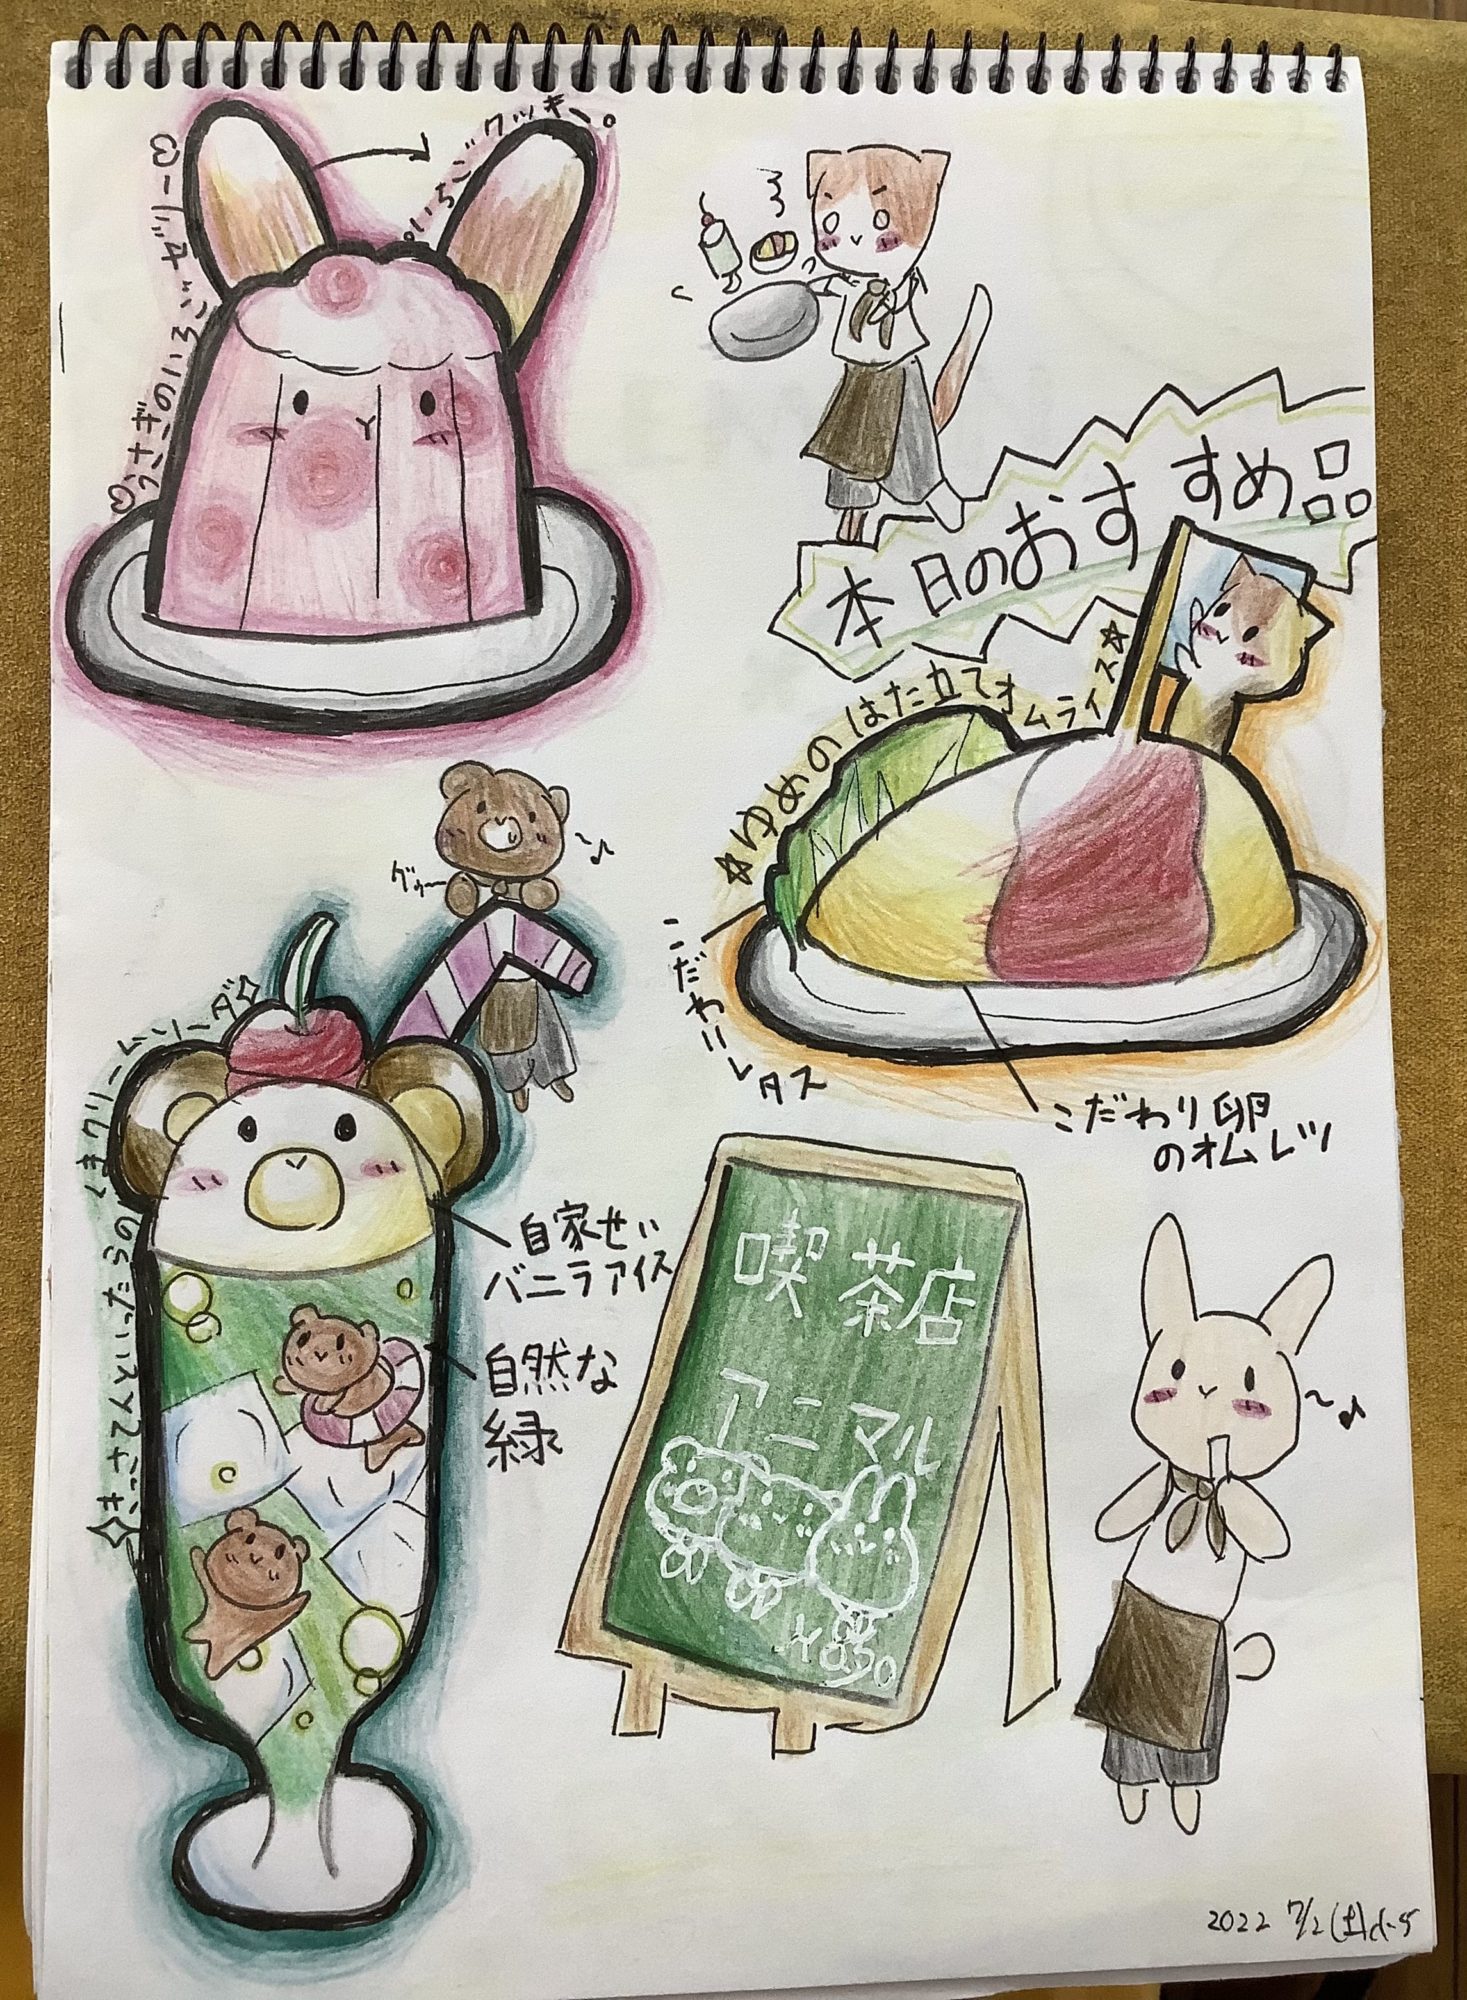 うさぎのいちごゼリー
いちごクッキー。
本日のおすすめ品
☆ゆめのはた立てオムライス☆
こだわりレタス
こだわり卵
のオムレツ
グゥ〜
きっさてんといったらのくまクリームソーダ
自家せい
バニラアイス
自然な
緑
喫茶店
アニマル
2022 7/2(土)